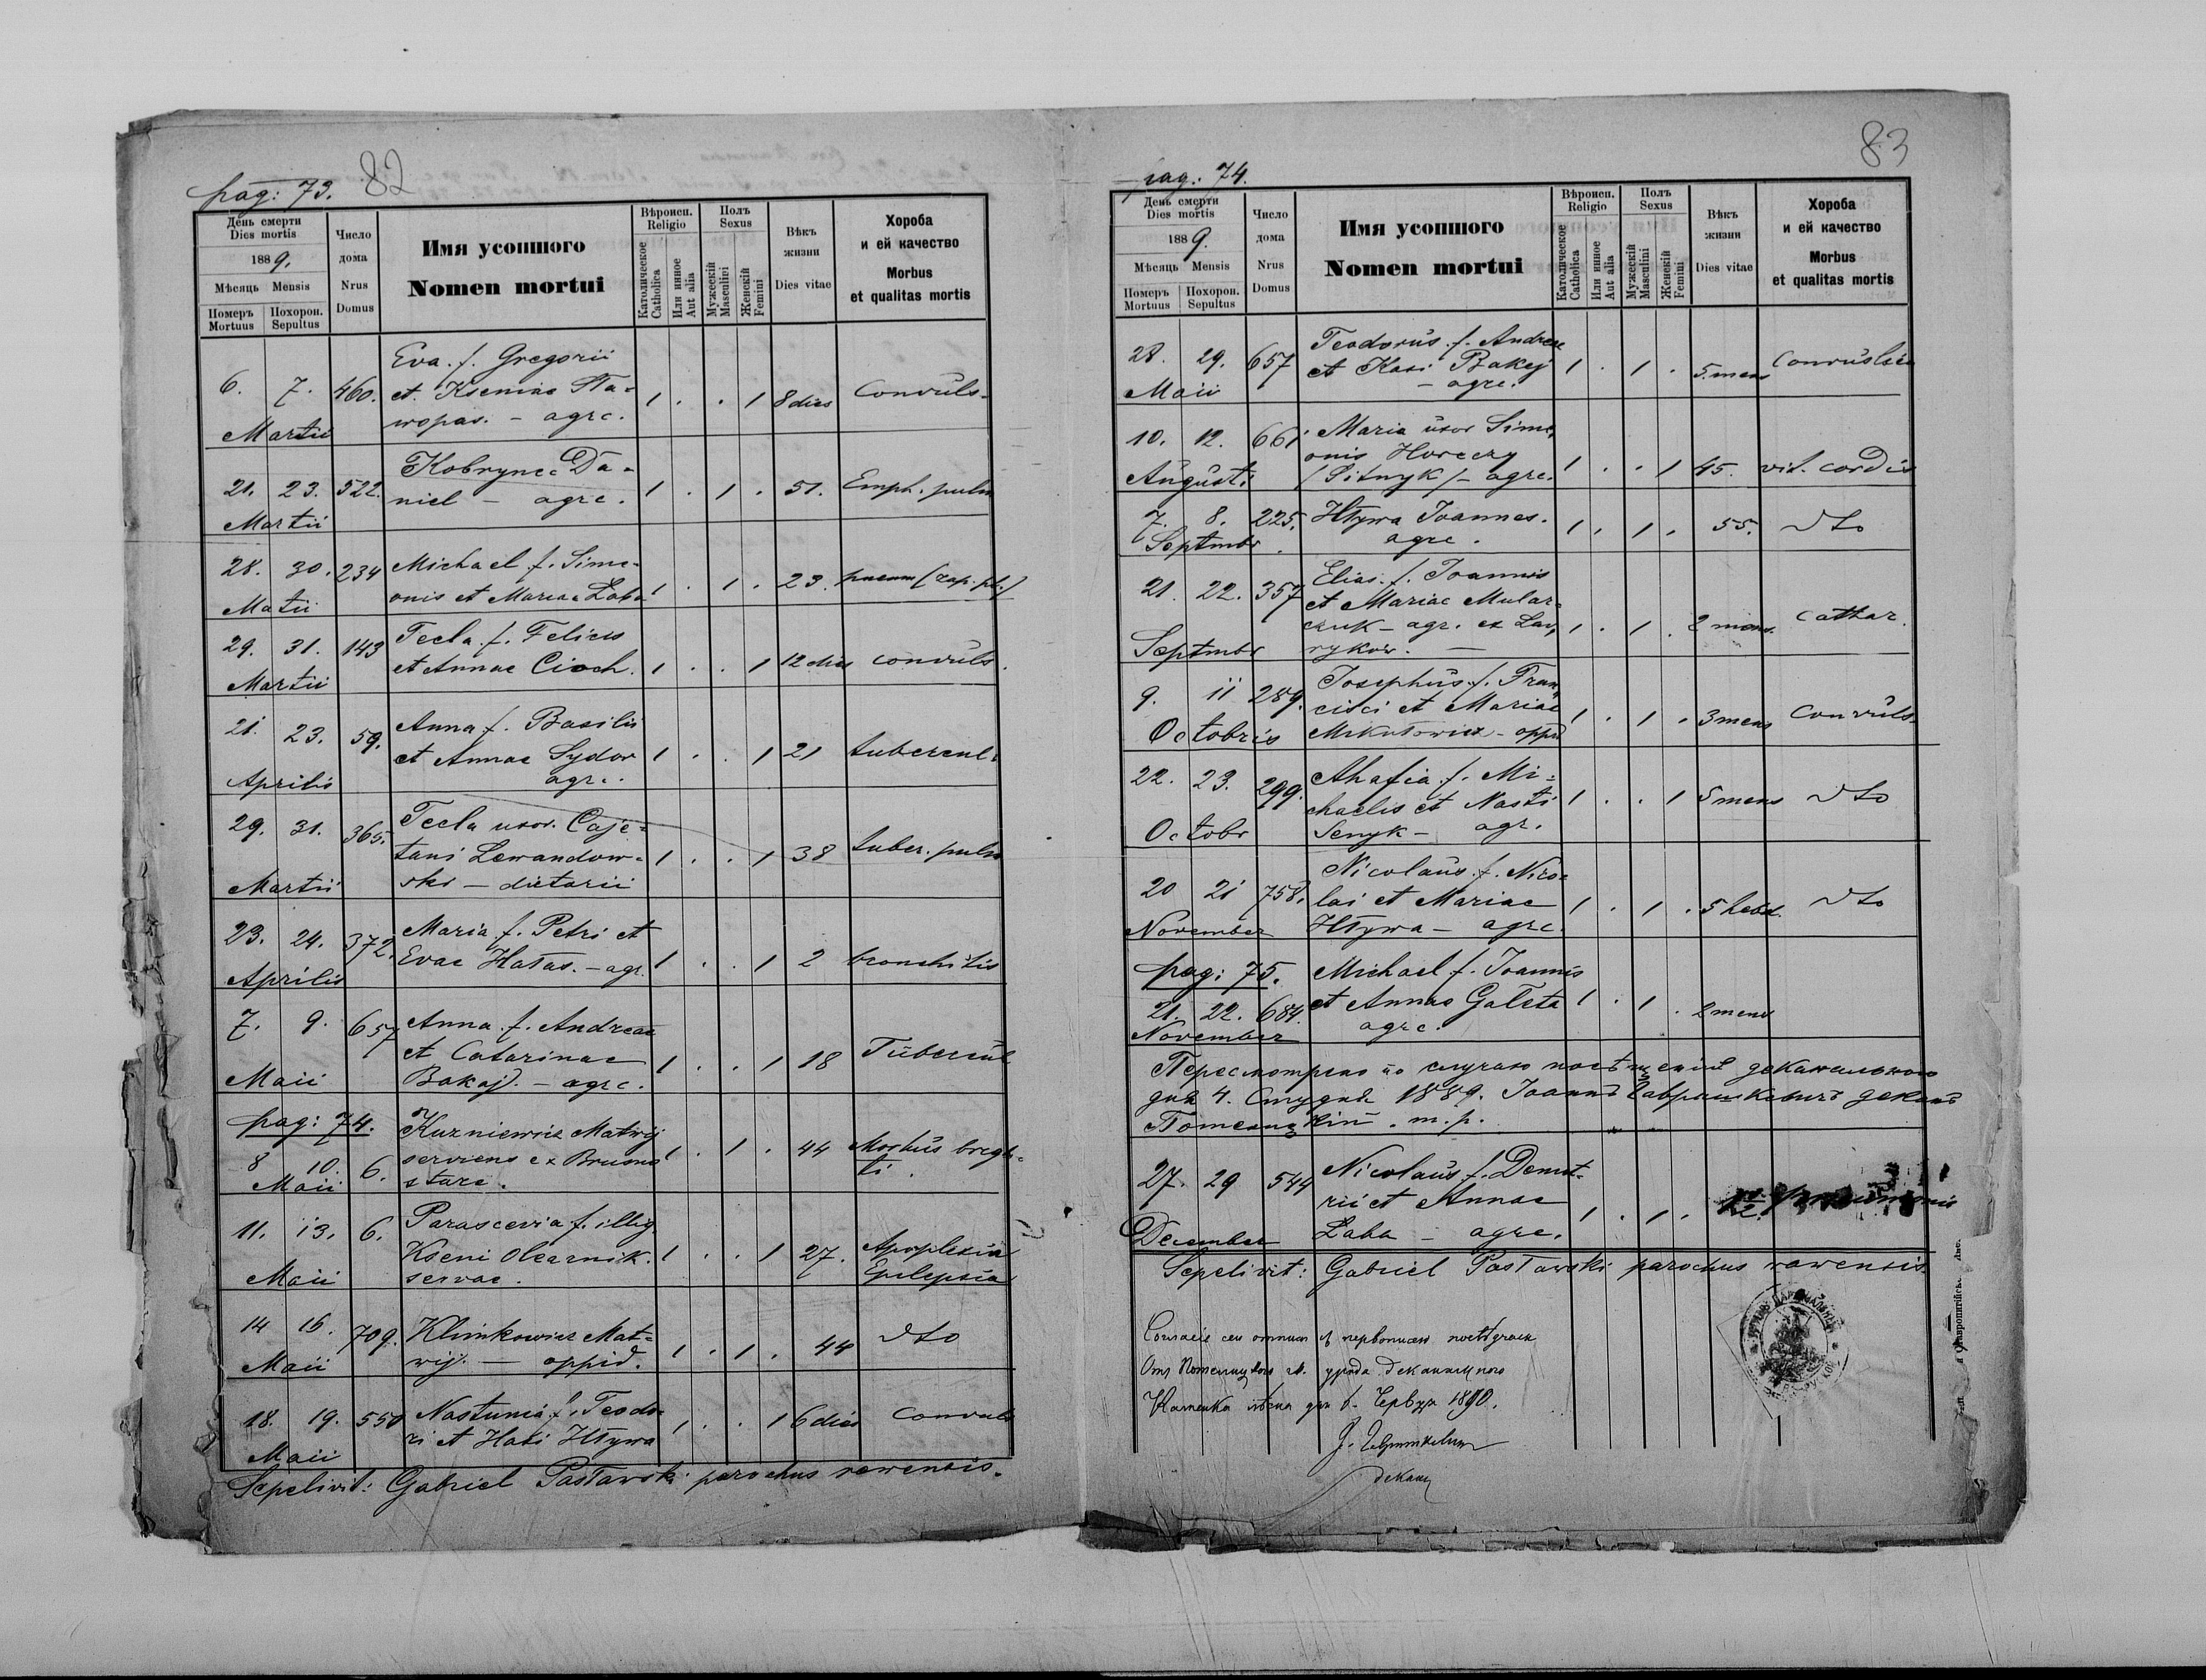 pag: 73. 82
День смерти
Dies mortis
1889.
Мѣсяць Mensis
Номеръ Mortuus
Похорон. Sepultus
Число дома
Nrus Domus
Имя усопшого
Nomen mortui
Вѣроисп. Religio
Католическое Catholica
Или инное Aut alia
Полъ Sexus
Мужескій Masculini
Женскій Femini
Вѣкъ жизни
Dies vitae
Хороба и ей качество
Morbus et qualitas mortis
Eva. f. Gregorii
6. 7. 460. et Kseniae Na= 1 . . 1 8 dies Convuls.
Martii wopas. – agrc.
Kobrynec Da=
21. 23. 522. niel – agrc. 1 . 1 . 51. Emph. pulm
Martii
28. 30. 234 Michael f. Sime=
Matii onis et Mariae Laba 1 . 1 . 23.
29. 31. 143 Tecla f. Felicis
Martii et Annae Cioch. 1 . . 1 12 dies convuls.
21. 23. 59. Anna f. Basilii
et Annae Sydor 1 . . 1 21 tubercul.
Aprilis agrc.
29. 31. 365. Tecla uxor. Caje=
tani Lewandow= 1 . . 1 38 tuber. pulm
Martii ski – dietarii
23. 24. 372. Maria f. Petri et
Aprilis Evae Hałas. – agr. 1 . . 1 2 bronchitis
7. 9. 657 Anna f. Andreae
et Catarinae 1 . . 1 18 Tubercul
Maii Bakaj. – agrc.
pag: 74. Kuzniewicz Matwij
8 10. 6. serviens ex Brusno 1 . 1 . 44 Morbus brigh=
Maii stare. ti.
11. 13. 6. Parascevia f. illeg.
Kseni Olearnik. 1 . . 1 27. Apoplexia
Maii servae. Epilepsia
14 16. 709. Klimkowicz Mat=
Maii wij. — oppid. 1 . 1 . 44 dto
18. 19. 550 Nastunia f. Teodo=
Maii ri et Hasi Hływa 1 . . 1 6 dies Convuls
Sepelivit: Gabriel Pasławski parochus rawensis.
83
pag: 74.
День смерти
Dies mortis
1889.
Мѣсяць Mensis
Номеръ Mortuus
Похорон. Sepultus
Число дома
Nrus Domus
Имя усопшого
Nomen mortui
Вѣроисп. Religio
Католическое Catholica
Или инное Aut alia
Полъ Sexus
Мужескій Masculini
Женскій Femini
Вѣкъ жизни
Dies vitae
Хороба и ей качество
Morbus et qualitas mortis
Teodorus f. Andreae
28. 29. 657 et Kasi Bakej 1 . 1 . 5. mens Convulsia
Maii – agrc.
10. 12. 661 Maria uxor Sime=
onis Horeczy
Augusti /Sitnyk/ – agrc. 1 . . 1 45. vit. cordis
7. 8. 225. Hływa Joannes. 1 . 1 . 55. dto
Septmbr. agrc.
Elias f. Joannis
21. 22. 357 et Mariae Mular=
czuk – agr. ex Law= 1 . 1 . 2 mens. cathar.
Septmbr rykow. —
9. 11 289. Josephus f. Fran=
cisci et Mariae 1 . 1 . 3 mens Convuls.
Octobris Mikułowicz – oppid
22. 23. 299. Ahafia f. Mi=
chaelis et Nasti 1 . . 1 5 mens dto
Octobr Senyk – agr.
Nicolaus f. Nico=
20 21 758. lai et Mariae 1 . 1 . 5 hebd. dto
November Hływa – agrc.
pag: 75. Michael f. Joannis
21. 22. 684. et Annae Gałeta 1 . 1 . 2 mens
November agrc.
Пересмотрено по случаю посѣщенія деканального
дня 4. Студня 1889. Іоаннъ Гаврышкевичъ деканъ
Потелицкій. m. p.
27. 29 544 Nicolaus f. Demet=
rii et Annae
December Laba – agrc. 1 . 1 .
Sepelivit: Gabriel Pasławski parochus rawensis.
Отъ Потелицкого гк. уряда деканального
Каменка лѣсна дня 6. Червця 1890.
деканъ